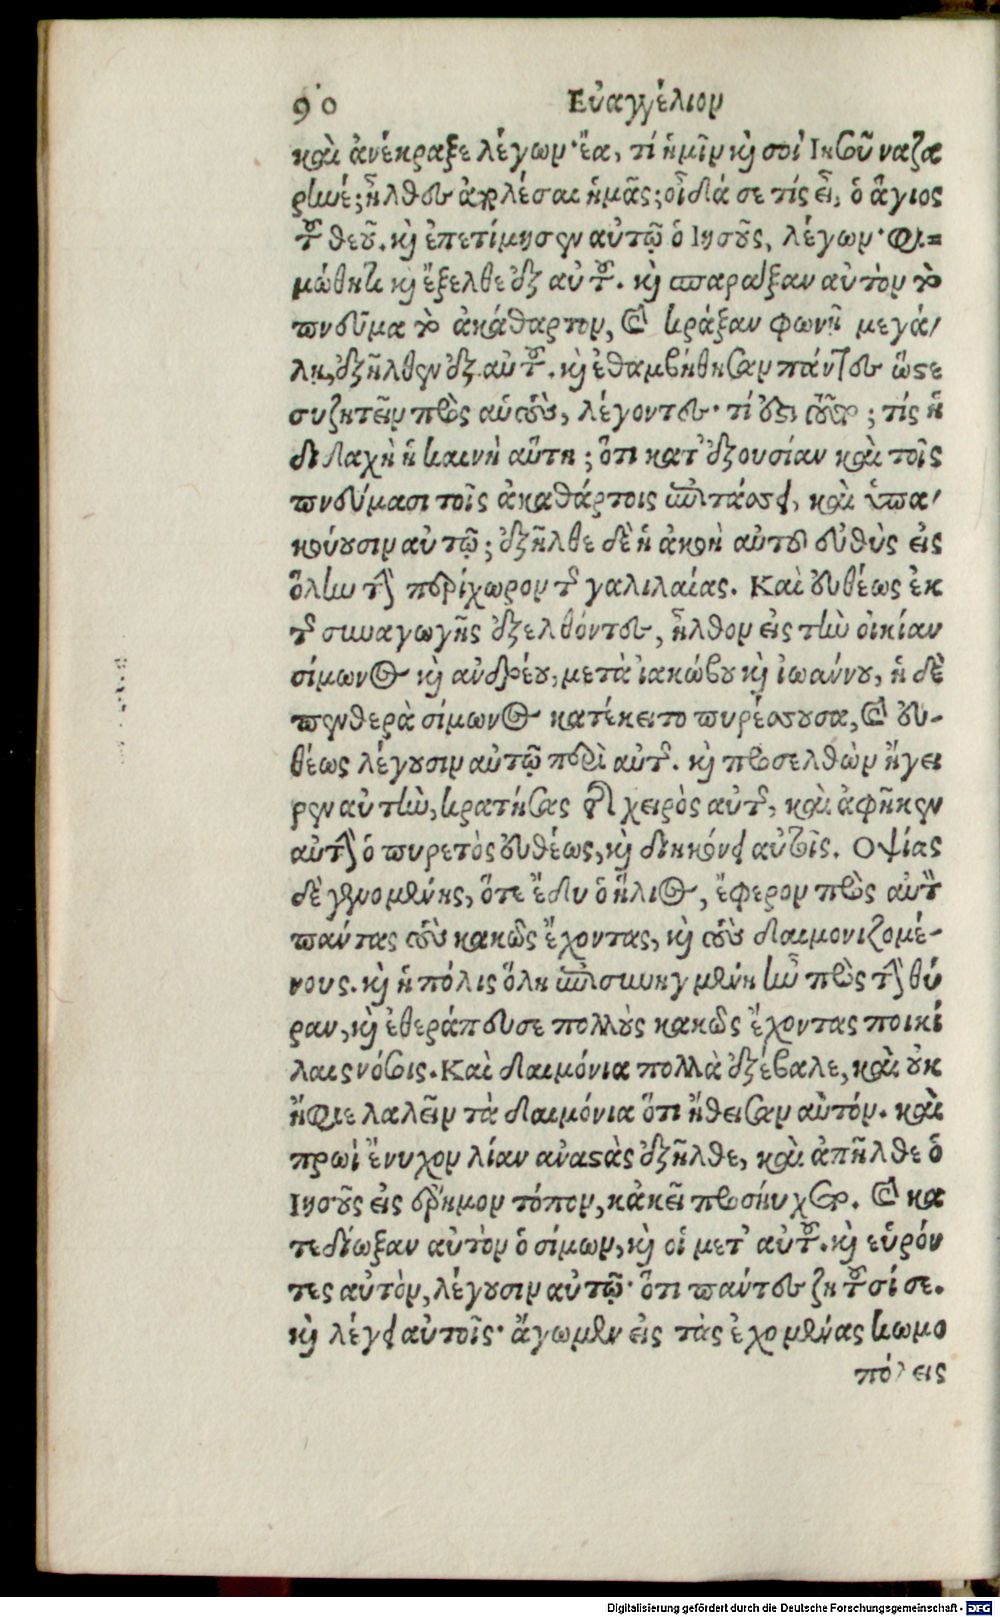 90 Εὐαγγέλιον
καὶ ἀνέκραξε λέγων· ἔα, τί ἡμῖν καὶ σοὶ Ἰησοῦ ναζα
ρηνέ; ἦλθες ἀπολέσαι ἡμᾶς; οἶδά σε τίς εἶ, ὁ ἅγιος
τοῦ θεοῦ. καὶ ἐπετίμησεν αὐτῷ ὁ Ιησοῦς, λέγων· Φι=
μώθητι καὶ ἔξελθε ἐξ αὐτοῦ. καὶ σπαράξαν αὐτὸν τὸ
πνεῦμα τὸ ἀκάθαρτον, καὶ κράξαν φωνῇ μεγά/
λῃ, ἐξῆλθεν ἐξ αὐτοῦ. καὶ ἐθαμβήθησαν πάντες ὥστε
συζητεῖν πρὸς αὑτοὺς, λέγοντες· τί ἐστι τοῦτο; τίς ἡ
διδαχὴ ἡ καινὴ αὕτη; ὅτι κατ' ἐξουσίαν καὶ τοῖς
πνεύμασι τοῖς ἀκαθάρτοις ἐπιτάσσει, καὶ ὑπα/
κούουσιν αὐτῷ; ἐξῆλθε δὲ ἡ ἀκοὴ αὐτοῦ εὐθὺς εἰς
ὅλην τὴν περίχωρον τῆς γαλιλαίας. Καὶ εὐθέως ἐκ
τῆς συναγωγῆς ἐξελθόντες, ἦλθον εἰς τὴν οἰκίαν
σίμωνος καὶ ἀνδρέου, μετὰ ἰακώβου καὶ ἰωάννου, ἡ δὲ
πενθερὰ σίμωνος κατέκειτο πυρέσσουσα, καὶ εὐ-
θέως λέγουσιν αὐτῷ περὶ αὐτῆς. καὶ προσελθὼν ἤγει
ρεν αὐτὴν, κρατήσας τῆς χειρὸς αὐτῆς, καὶ ἀφῆκεν
αὐτὴν ὁ πυρετὸς εὐθέως, καὶ διηκόνει αὐτοῖς. Οψίας
δὲ γενομένης, ὅτε ἔδυ ὁ ἥλιος, ἔφερον πρὸς αὐτὸν
πάντας τοὺς κακῶς ἔχοντας, καὶ τοὺς δαιμονιζομέ-
νους. καὶ ἡ πόλις ὅλη ἐπισυνηγμένη ἦν πρὸς τὴν θύ
ραν, καὶ ἐθεράπευσε πολλοὺς κακῶς ἔχοντας ποικί
λαις νόσοις. Καὶ δαιμόνια πολλὰ ἐξέβαλε, καὶ οὐκ
ἤφιε λαλεῖν τὰ δαιμόνια ὅτι ᾔδεισαν αὐτόν. καὶ
πρωὶ ἔννυχον λίαν ἀναστὰς ἐξῆλθε, καὶ ἀπῆλθε ὁ
Ιησοῦς εἰς ἔρημον τόπον, κἀκεῖ προσηύχετο. καὶ κα
τεδίωξαν αὐτὸν ὁ σίμων, καὶ οἱ μετ' αὐτοῦ. καὶ εὑρόν
τες αὐτὸν, λέγουσιν αὐτῷ· ὅτι πάντες ζητοῦσί σε.
καὶ λέγει αὐτοῖς· ἄγωμεν εἰς τὰς ἐχομένας κωμο
πόλεις
Digitalisierung gefördert durch die Deutsche Forschungsgemeinschaft - DFG